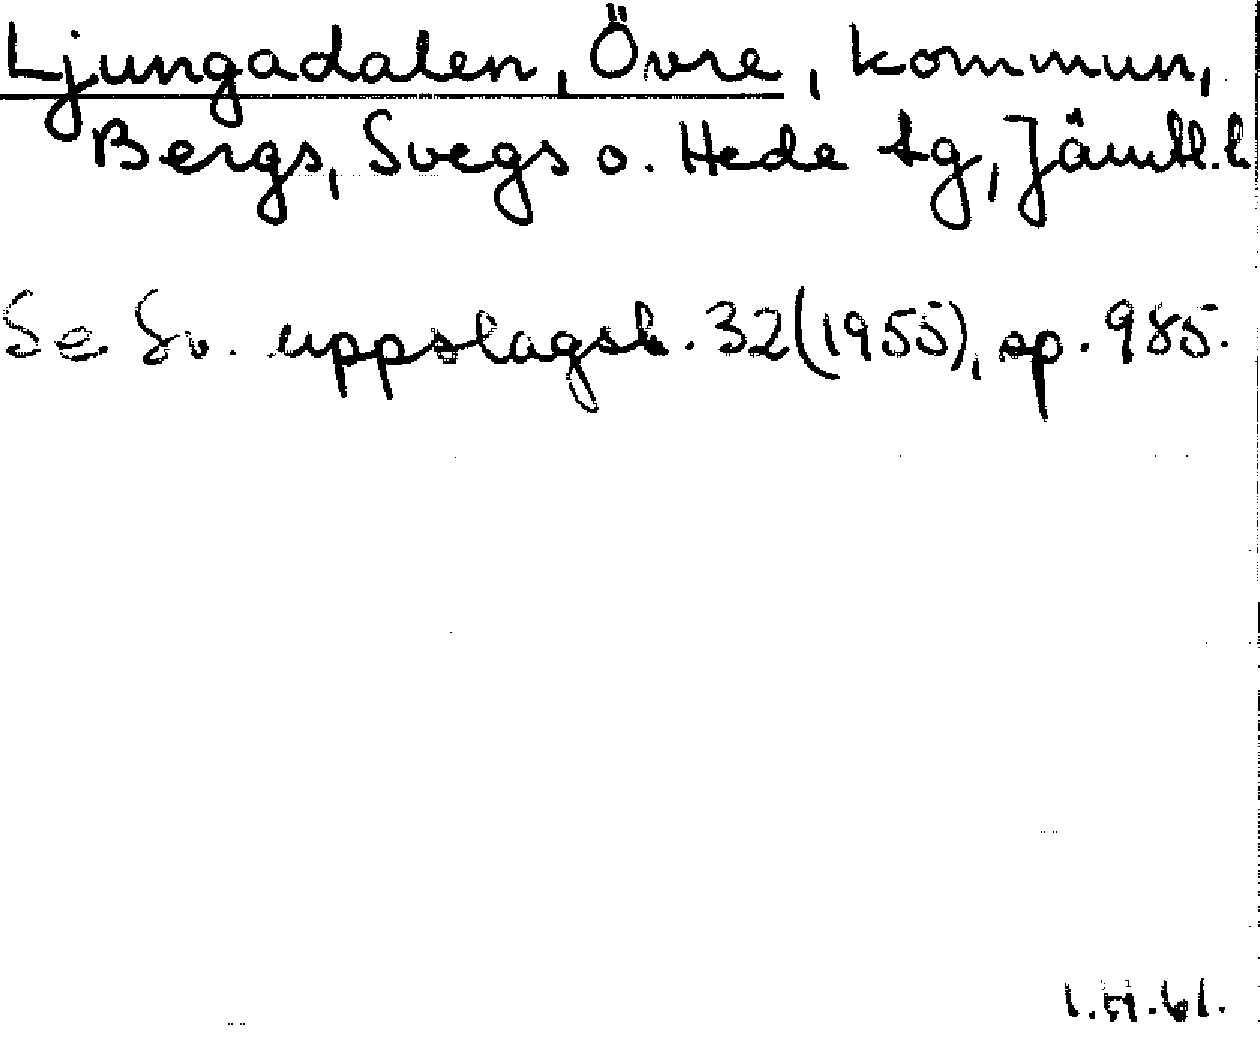 Ljungadalen, Övre, kommun,
Bergs, Svegs o. Hede tg, Jämtl. l
Se Sv. uppslagsb. 32 (1955), sp. 985.